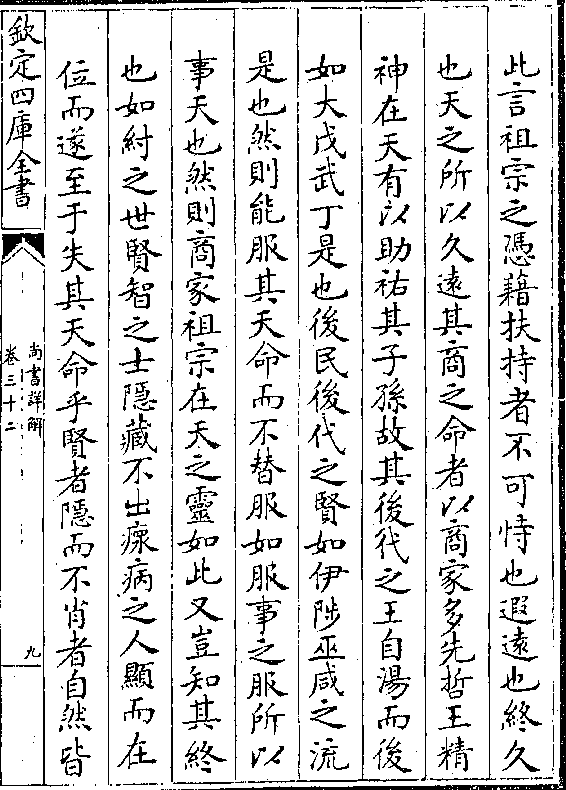 此言祖宗之憑藉扶持者不可恃也遐遠也終久
也天之所以久遠其商之命者以商家多先哲王精
神在天有以助祐其子孫故其後代之王自湯而後
如大戊武丁是也後民後代之賢如伊陟巫咸之流
是也然則能服其天命而不替服如服事之服所以
事天也然則商家祖宗在天之靈如此又豈知其終
也如紂之世賢智之士隱藏不出瘝病之人顯而在
位而遂至于失其天命乎賢者隱而不肖者自然皆
欽定四庫全書
尚書詳解
卷三十二
九